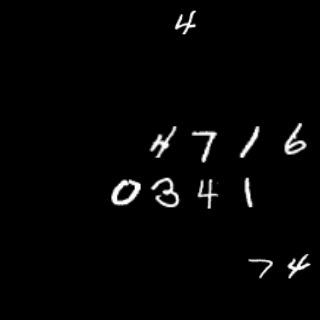 4
4 7 1 6
0 3 4 1
7 4